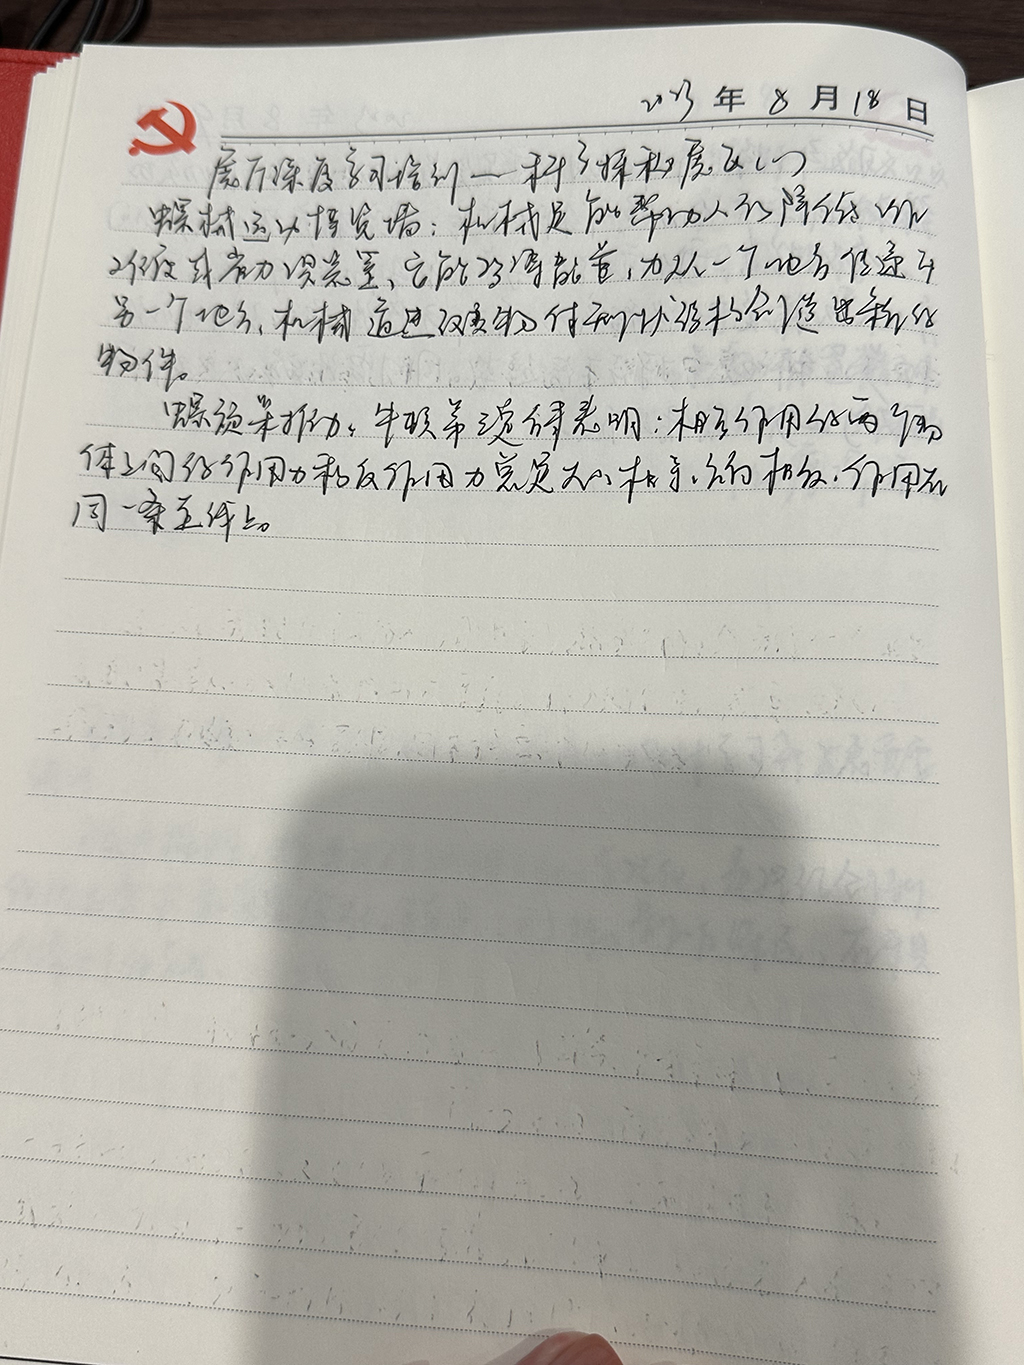 2023年8月18日
展厅深度学习培训——科学探秘展区(一)
机械运动博览墙：机械是能帮助人们降低工作
难度或省力的装置、它能将能量、力从一个地方传递到
另一个地方、机械通过改变物件形状结构创造出新的
物件。
螺旋桨推动：牛顿第三定律表明：相互作用的两个物
体之间的作用力和反作用力总是大小相等、方向相反、作用在
同一条直线上。